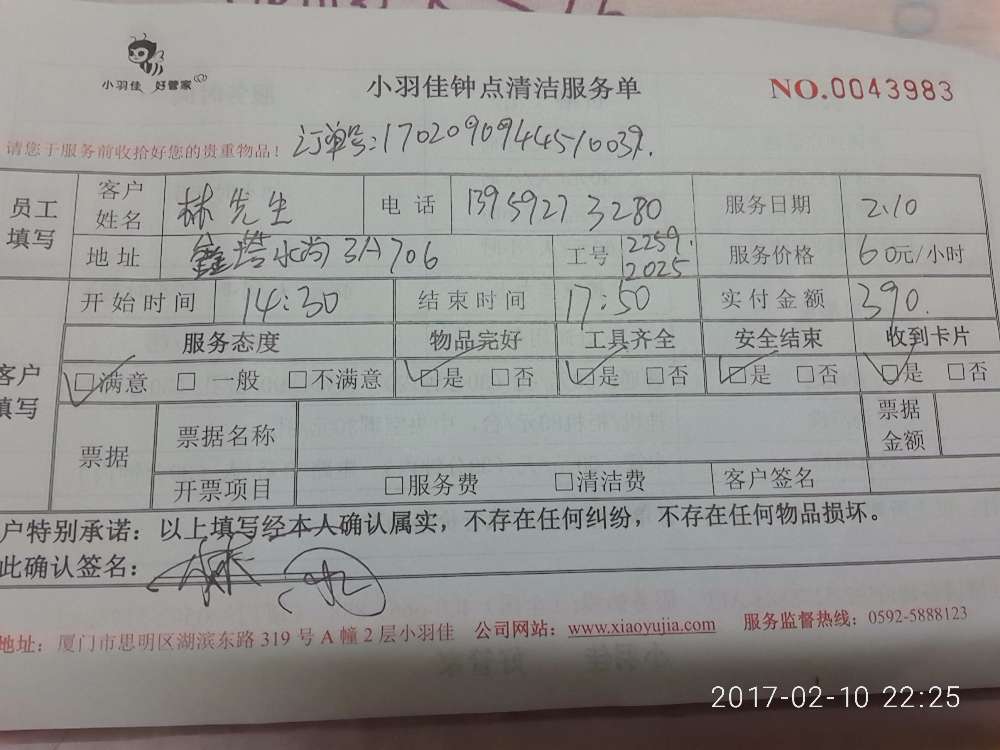 小羽佳 好管家
小羽佳钟点清洁服务单
NO.0043983
请您于服务前收拾好您的贵重物品！
订单号:17020909444510039.
员工填写 客户姓名 林先生 电 话 13959273280 服务日期 2.10
地址 鑫塔水尚3A706 工号 2259. 2025 服务价格 60元/小时
客户填写 开始时间 14:30 结束时间 17:50 实付金额 390.
服务态度 物品完好 工具齐全 安全结束 收到卡片
☑满意 □ 一般 □不满意 ☑是 □否 ☑是 □否 ☑是 □否 ☑是 □否
票据 票据名称 票据金额
开票项目 □服务费 □清洁费 客户签名
户特别承诺：以上填写经本人确认属实，不存在任何纠纷，不存在任何物品损坏。
此确认签名：林
地址：厦门市思明区湖滨东路 319 号 A 幢 2 层小羽佳 公司网站：www.xiaoyujia.com 服务监督热线：0592-5888123
2017-02-10 22:25